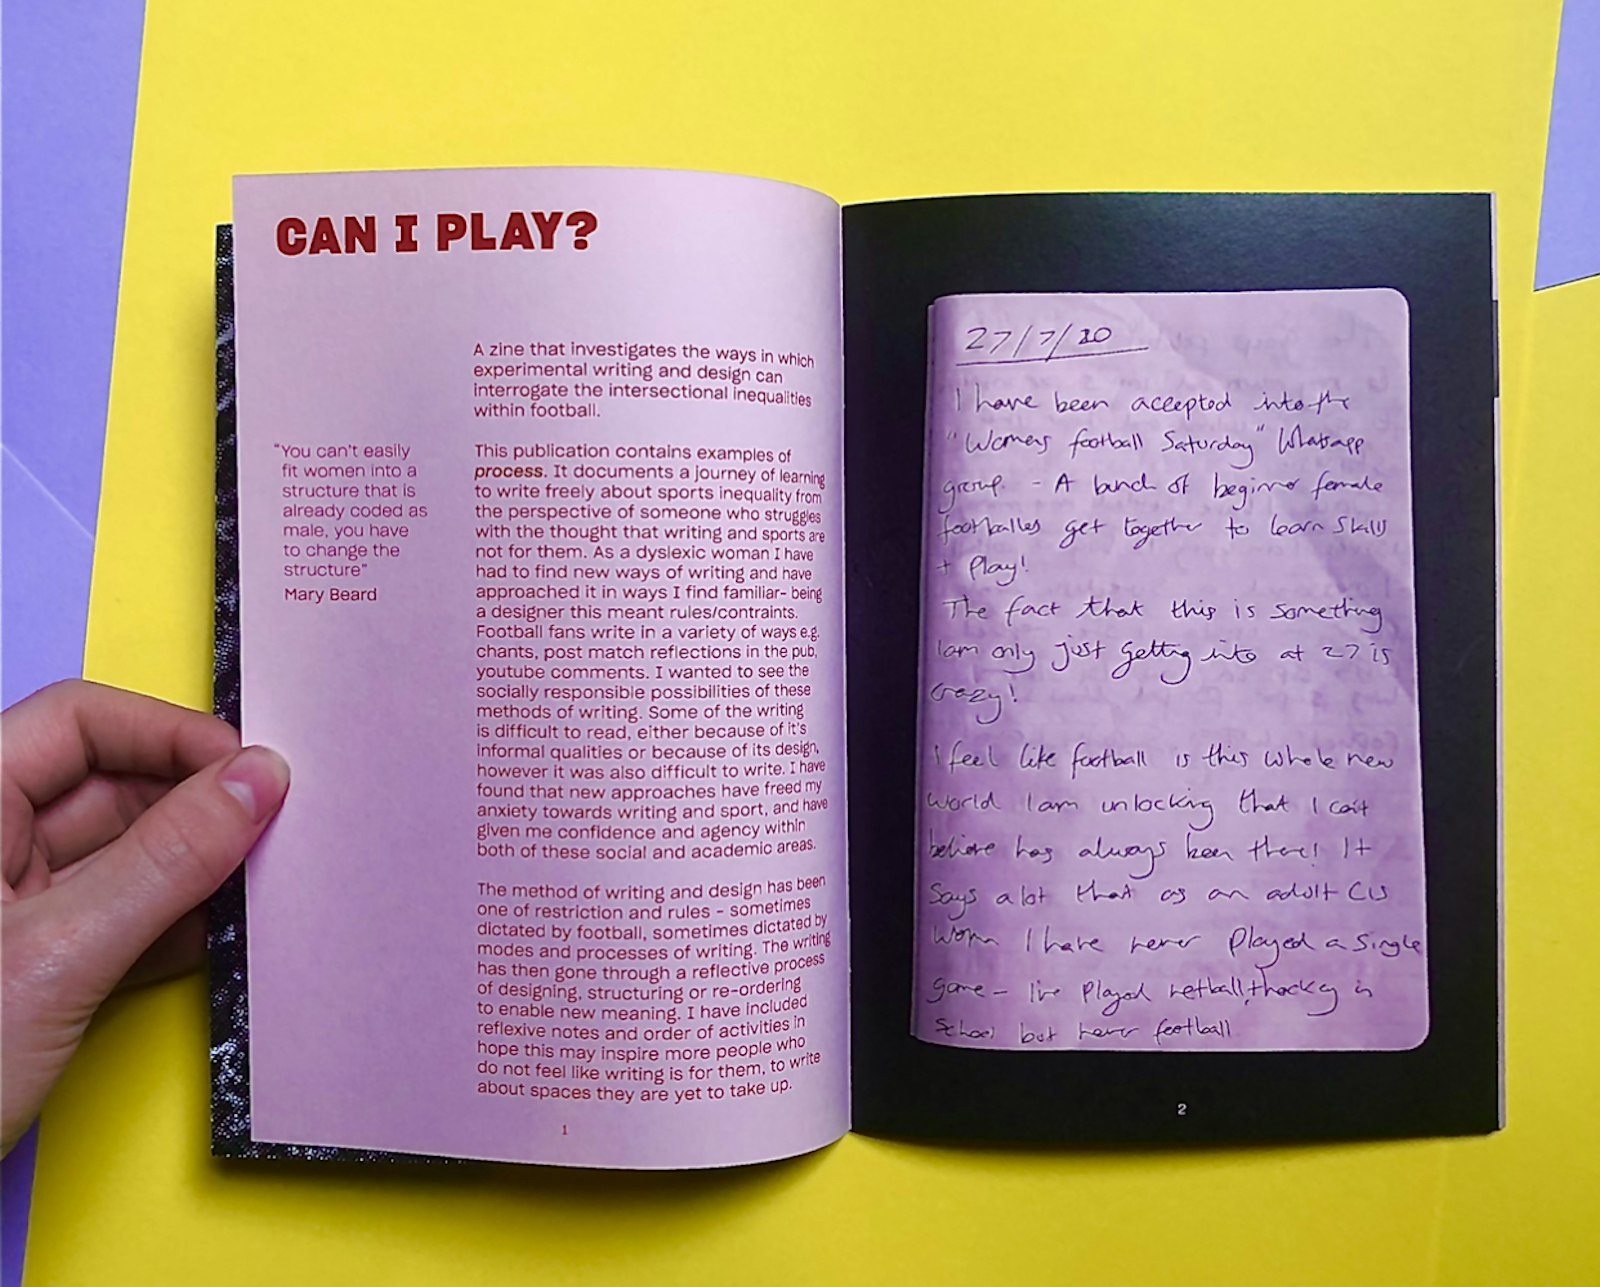 CAN I PLAY?
A zine that investigates the ways in which
experimental writing and design can
interrogate the intersectional inequalities
within football.
"You can't easily
fit women into a
structure that is
already coded as
male, you have
to change the
structure"
Mary Beard
This publication contains examples of
process. It documents a journey of learning
to write freely about sports inequality from
the perspective of someone who struggles
with the thought that writing and sports are
not for them. As a dyslexic woman I have
had to find new ways of writing and have
approached it in ways I find familiar- being
a designer this meant rules/contraints.
Football fans write in a variety of ways e.g.
chants, post match reflections in the pub,
youtube comments. I wanted to see the
socially responsible possibilities of these
methods of writing. Some of the writing
is difficult to read, either because of it's
informal qualities or because of its design,
however it was also difficult to write. I have
found that new approaches have freed my
anxiety towards writing and sport, and have
given me confidence and agency within
both of these social and academic areas.
The method of writing and design has been
one of restriction and rules - sometimes
dictated by football, sometimes dictated by
modes and processes of writing. The writing
has then gone through a reflective process
of designing, structuring or re-ordering
to enable new meaning. I have included
reflexive notes and order of activities in
hope this may inspire more people who
do not feel like writing is for them, to write
about spaces they are yet to take up.
1
27/7/20
I have been accepted into the
"Womens football Saturday" Whatsapp
group - A bunch of beginner female
footballes get together to learn Skills
+ Play!
The fact that this is something
I am only just getting into at 27 is
crazy!
I feel like football is this whole new
world I am unlocking that I can't
believe has always been there! It
Says a lot that as an adult Cis
Woman I have never played a single
game - I've played netball + hockey in
School but never football
2